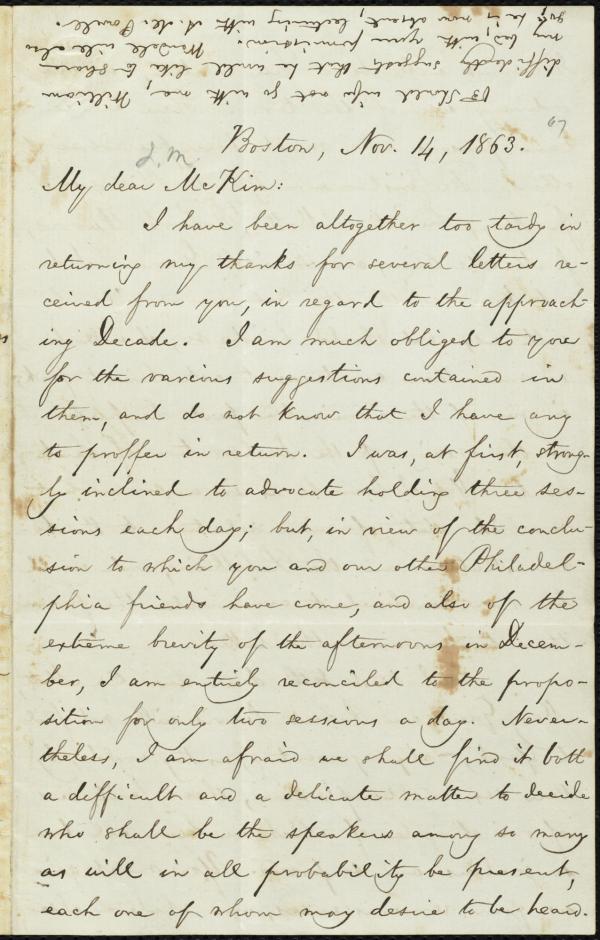 Should wife not go with me, William
diffidently suggests that he would like to share
my bed, with your permission. Wendell will also
go, he is now absent, lecturing with A. M. Powell.
67
Boston, Nov. 14, 1863.
J. M.
My dear McKim:
I have been altogether too tardy in
returning my thanks for several letters re-
ceived from you, in regard to the approach-
ing Decade. I am much obliged to you
for the various suggestions contained in
them, and do not know that I have any
to proffer in return. I was, at first, strong-
ly inclined to advocate holding three ses-
sions each day; but, in view of the conclu-
sion to which you and our other Philadel-
phia friends have come, and also of the
extreme brevity of the afternoons in Decem-
ber, I am entirely reconciled to the propo-
sition for only two sessions a day. Never-
theless, I am afraid we shall find it both
a difficult and a delicate matter to decide
who shall be the speakers among so many
as will in all probability be present,
each one of whom may desire to be heard.